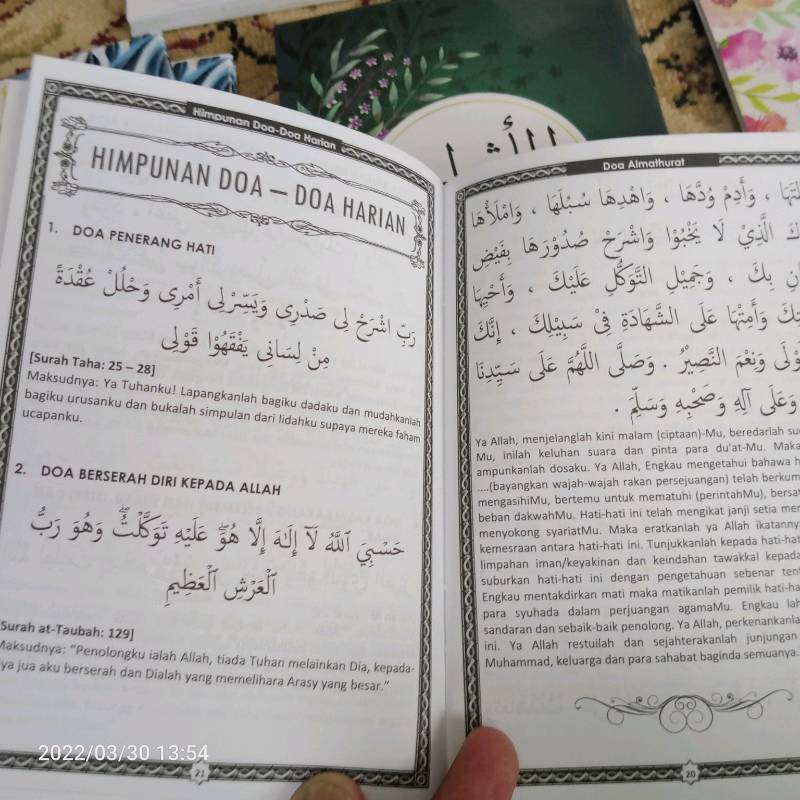 Himpunan Doa-Doa Harian
HIMPUNAN DOA – DOA HARIAN
1. DOA PENERANG HATI
رَبِّ اشْرَحْ لِى صَدْرِى وَيَسِّرْلِى أَمْرِى وَحْلُلْ عُقْدَةً
مِنْ لِسَانِى يَفْقَهُوْا قَوْلِى
[Surah Taha: 25 – 28]
Maksudnya: Ya Tuhanku! Lapangkanlah bagiku dadaku dan mudahkanlah
bagiku urusanku dan bukalah simpulan dari lidahku supaya mereka faham
ucapanku.
2. DOA BERSERAH DIRI KEPADA ALLAH
حَسْبِيَ ٱللَّهُ لَآ إِلَـٰهَ إِلَّا هُوَۖ عَلَيْهِ تَوَكَّلْتُۖ وَهُوَ رَبُّ
ٱلْعَرْشِ ٱلْعَظِيمِ
Surah at-Taubah: 129]
Maksudnya: "Penolongku ialah Allah, tiada Tuhan melainkan Dia, kepada-
ya jua aku berserah dan Dialah yang memelihara Arasy yang besar."
21
Doa Almathurat
، وَأَدِمْ وُدَّهَا ، وَاهْدِهَا سُبُلَهَا ، وَامْلَأْهَا
الَّذِيْ لَا يَخْبُوْا وَاشْرَحْ صُدُوْرَهَا بِفَيْضِ
بِكَ ، وَجَمِيْلِ التَّوَكُّلِ عَلَيْكَ ، وَأَحْيِهَا
وَأَمِتْهَا عَلَى الشَّهَادَةِ فِيْ سَبِيْلِكَ ، إِنَّكَ
وَنِعْمَ النَّصِيْرُ . وَصَلَّى اللَّهُمَّ عَلَى سَيِّدِنَا
وَعَلَى آلِهِ وَصَحْبِهِ وَسَلِّمْ .
Ya Allah, menjelanglah kini malam (ciptaan)-Mu, beredarlah
Mu, inilah keluhan suara dan pinta para du'at-Mu. Maka
ampunkanlah dosaku. Ya Allah, Engkau mengetahui bahawa
....(bayangkan wajah-wajah rakan persejuangan) telah
mengasihiMu, bertemu untuk mematuhi (perintahMu),
beban dakwahMu. Hati-hati ini telah mengikat janji setia
menyokong syariatMu. Maka eratkanlah ya Allah
kemesraan antara hati-hati ini. Tunjukkanlah kepada
limpahan iman/keyakinan dan keindahan tawakkal
suburkan hati-hati ini dengan pengetahuan sebenar
Engkau mentakdirkan mati maka matikanlah pemilik
para syuhada dalam perjuangan agamaMu. Engkau
sandaran dan sebaik-baik penolong. Ya Allah,
ini. Ya Allah restuilah dan sejahterakanlah junjungan
Muhammad, keluarga dan para sahabat baginda semuanya.
20
2022/03/30 13:54